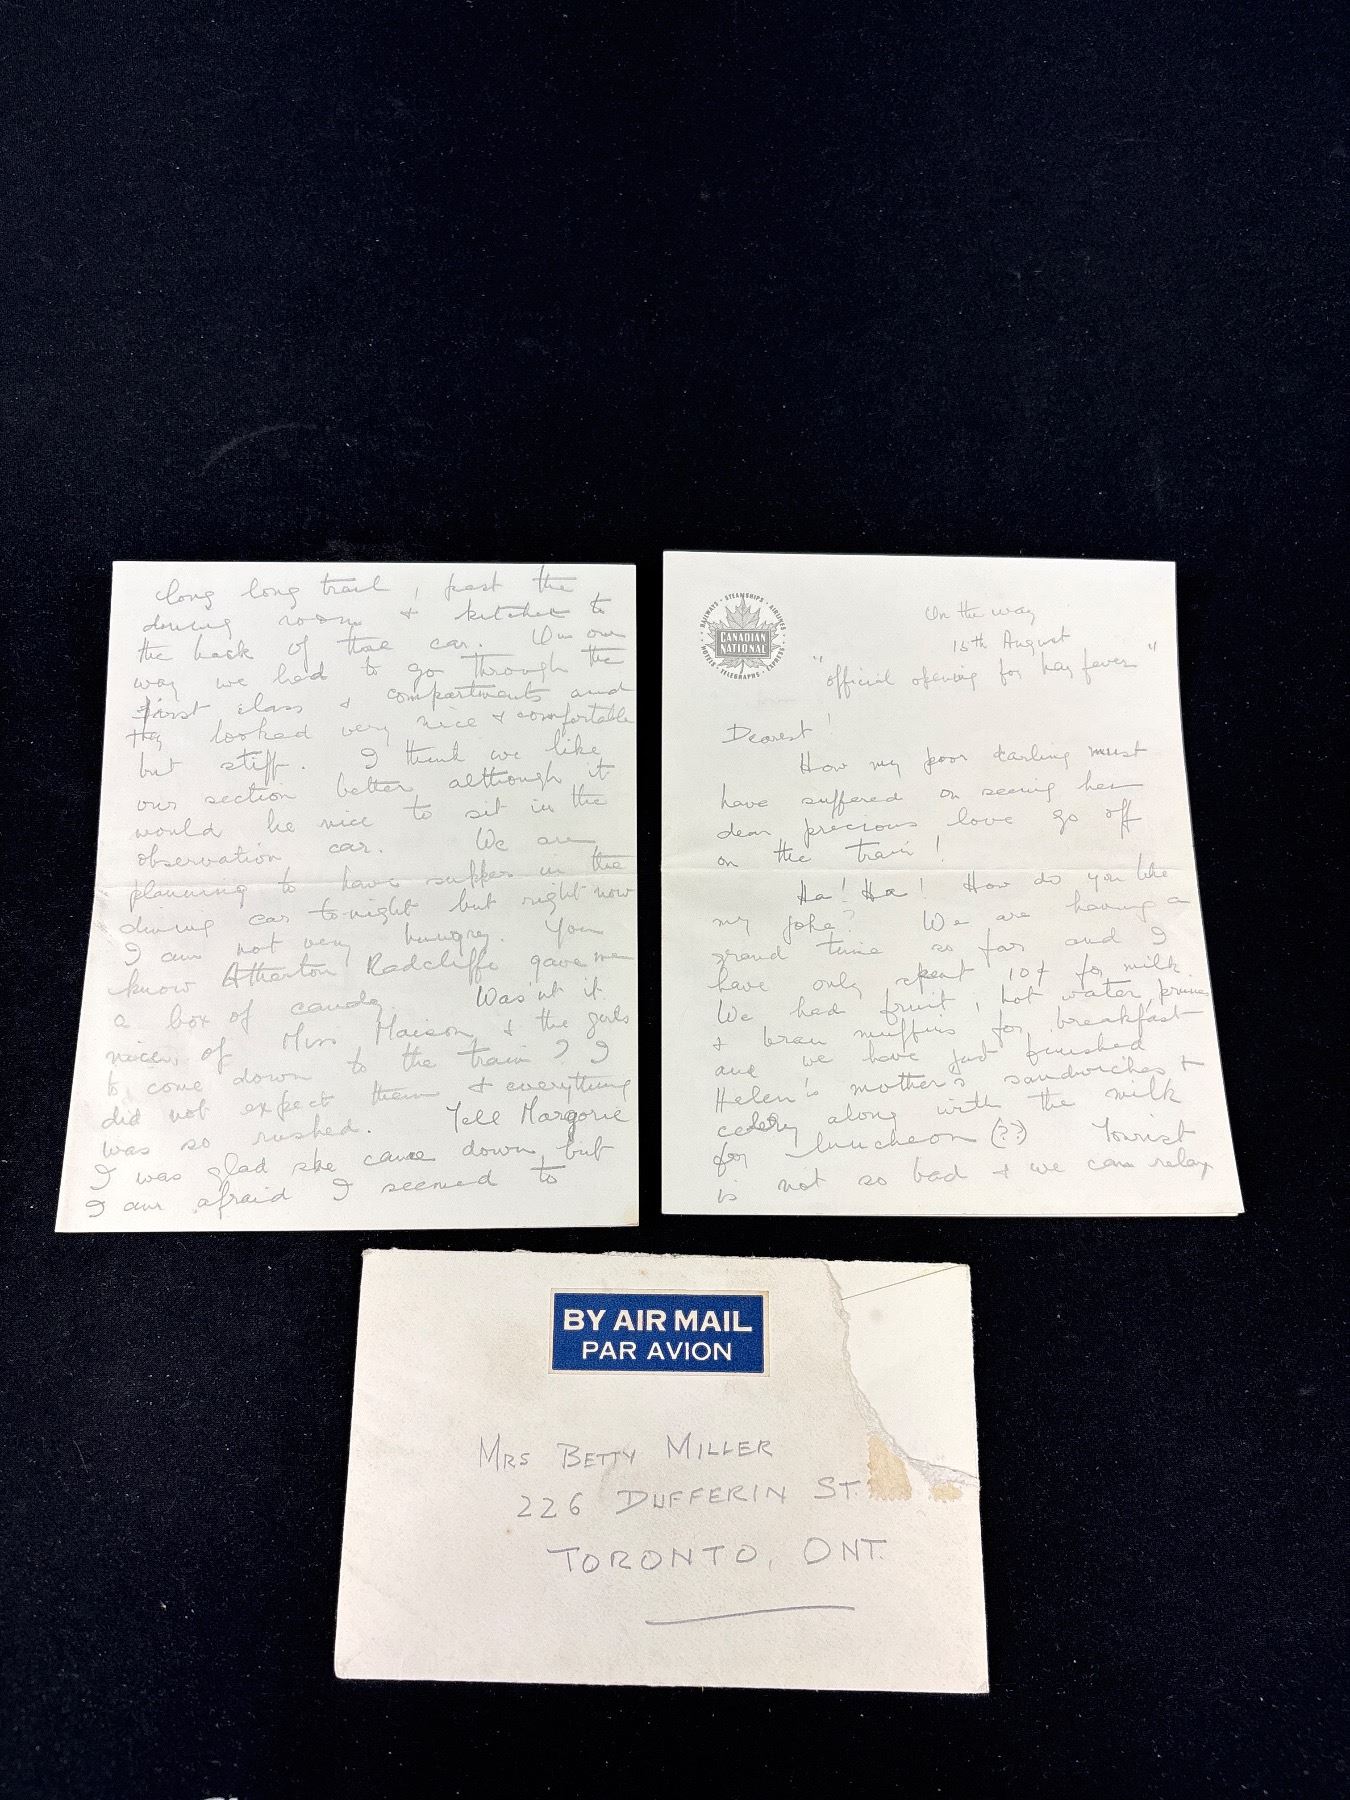 RAILWAYS • STEAMSHIPS • AIRLINES
CANADIAN
NATIONAL
HOTELS • TELEGRAPHS • EXPRESS
On the way
15th August
"official opening for hay fever"
Dearest!
How my poor darling must
have suffered on seeing her
dear precious love go off
on the train!
Ha! Ha! How do you like
my joke? We are having a
grand time so far and I
have only spent 10¢ for milk.
We had fruit, hot water, prunes
& bran muffins for breakfast
and we have just finished
Helen's mother's sandwiches &
celery along with the milk
for luncheon (??) Tourist
is not so bad & we can relax
long long trail, past the
dining room & kitchen to
the back of the car. On our
way we had to go through the
first class & compartments and
they looked very nice & comfortable
but stiff. I think we like
our section better although it
would be nice to sit in the
observation car. We are
planning to have supper in the
dining car to-night but right now
I am not very hungry. You
know Atherton Radcliffe gave me
a box of candy. Was'nt it
nice of Miss & the girls
to come down to the train? I
did not expect them & everything
was so rushed. Tell Margorie
I was glad she came down but
I am afraid I seemed to
BY AIR MAIL
PAR AVION
MRS BETTY MILLER
226 DUFFERIN ST.
TORONTO, ONT.